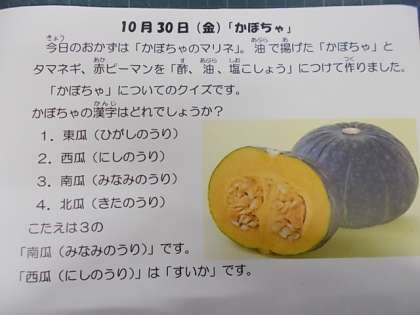 10月30日（金）「かぼちゃ」
今日のおかずは「かぼちゃのマリネ」。油で揚げた「かぼちゃ」と
タマネギ、赤ピーマンを「酢、油、塩こしょう」につけて作りました。
「かぼちゃ」についてのクイズです。
かぼちゃの漢字はどれでしょうか？
1．東瓜（ひがしのうり）
2．西瓜（にしのうり）
3．南瓜（みなみのうり）
4．北瓜（きたのうり）
こたえは３の
「南瓜（みなみのうり）」です。
「西瓜（にしのうり）」は「すいか」です。